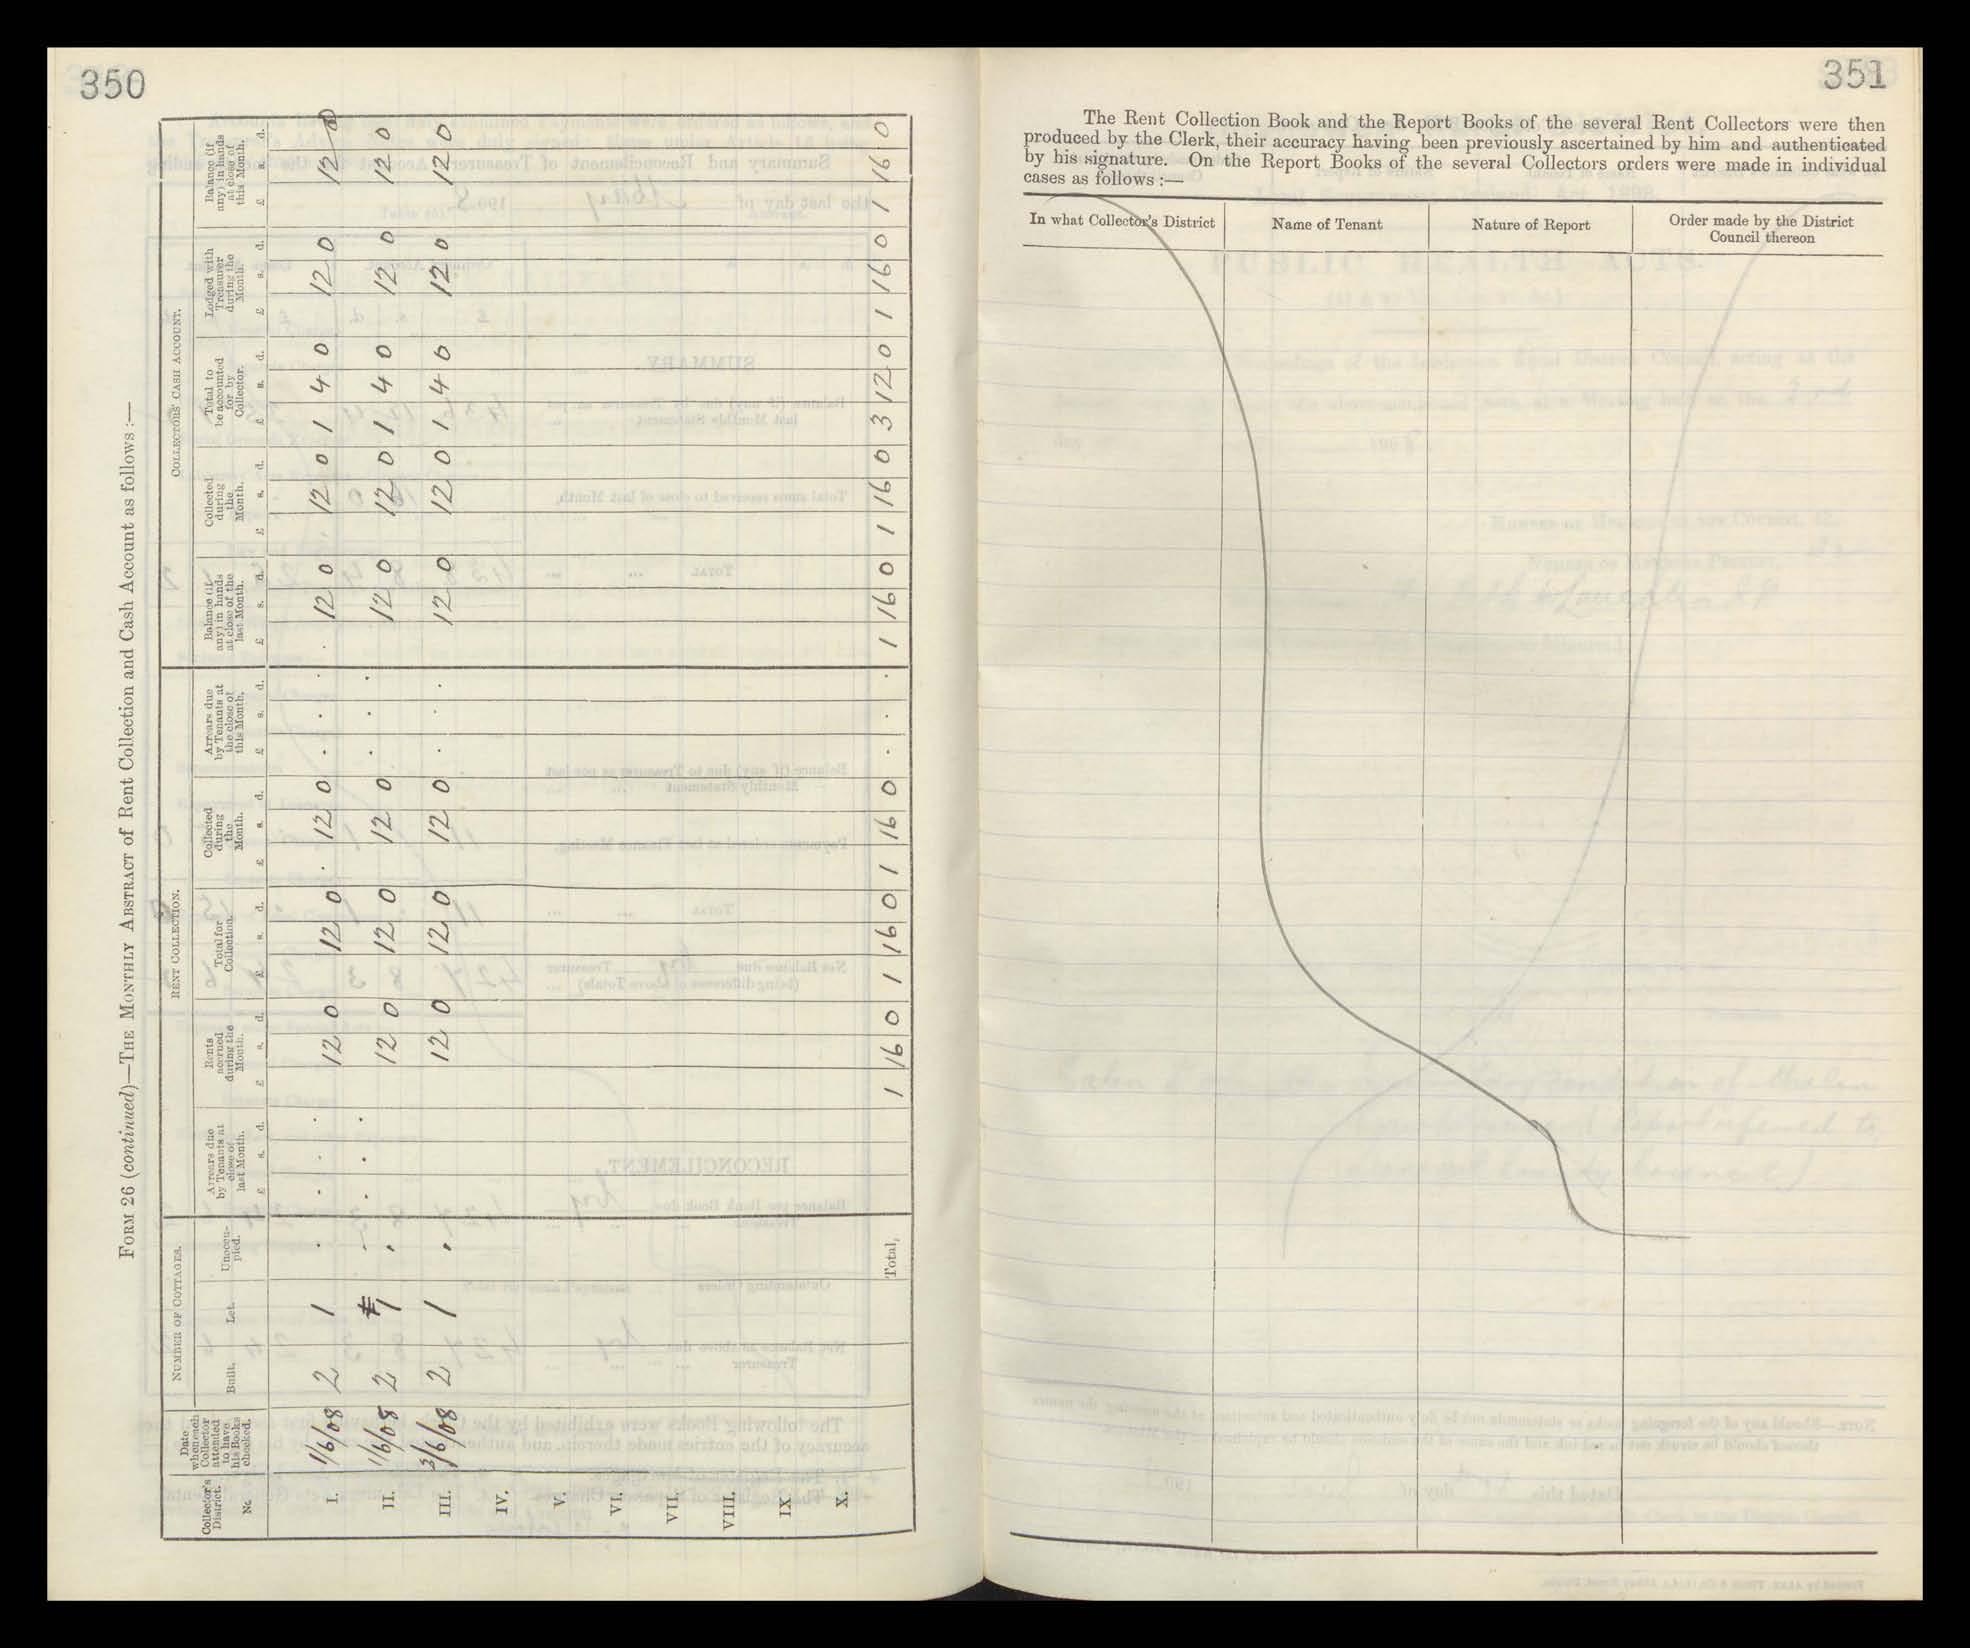 350
FORM 26 (continued)—THE MONTHLY ABSTRACT of Rent Collection and Cash Account as follows :—
Collector's District. No.
Date when each Collector attended to have his Books checked.
NUMBER OF COTTAGES.
Built.
Let.
Unoccupied.
RENT COLLECTION.
Arrears due by Tenants at close of last Month.
£ s. d.
Rents accrued during the Month.
£ s. d.
Total for Collection.
£ s. d.
Collected during the Month.
£ s. d.
Arrears due by Tenants at the close of this Month.
£ s. d.
COLLECTORS' CASH ACCOUNT.
Balance (if any) in hands at close of the last Month.
£ s. d.
Collected during the Month.
£ s. d.
Total to be accounted for by Collector.
£ s. d.
Lodged with Treasurer during the Month.
£ s. d.
Balance (if any) in hands at close of this Month.
£ s. d.
I. 1/6/08 2 1 . . . . 12 0 12 0 . 12 0 . . . . 12 0 12 0 1 4 0 12 0 12 0
II. 1/6/08 2 1 . . . . 12 0 12 0 12 0 . . . 12 0 12 0 1 4 0 12 0 12 0
III. 3/6/08 2 1 . 12 0 12 0 12 0 . . . 12 0 12 0 1 4 0 12 0 12 0
IV.
V.
VI.
VII.
VIII.
IX.
X.
Total, 1 16 0 1 16 0 1 16 0 . . . 1 16 0 1 16 0 3 12 0 1 16 0 1 16 0
351
The Rent Collection Book and the Report Books of the several Rent Collectors were then
produced by the Clerk, their accuracy having been previously ascertained by him and authenticated
by his signature. On the Report Books of the several Collectors orders were made in individual
cases as follows :—
In what Collector's District
Name of Tenant
Nature of Report
Order made by the District
Council thereon